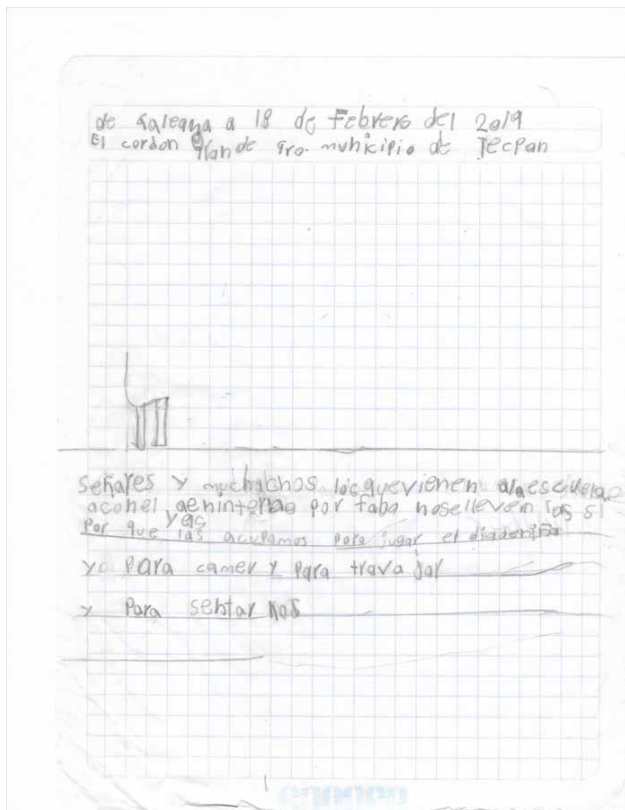 de Galeana a 18 de Febrero del 2019
El cordon Gran de Gro. municipio de Tecpan
señales y muchachos los que vienen ala escuela
a conel aeninterne por faba noselleven las si
yas
Por que las acupamos para jugar el diadeniña
yo para camer y para trava jar
y Para sentar nos